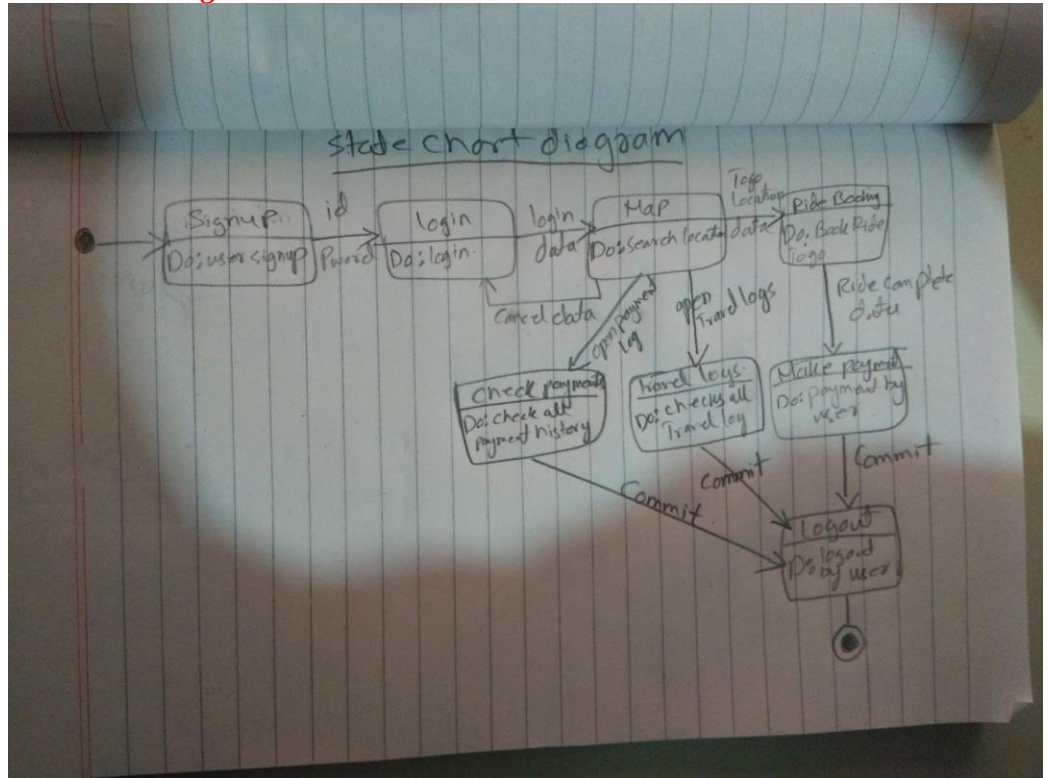 State chart diagram
Signup..
Do: user signup
id
Pword
login
Do: login.
login
data
Map
Do: search locate
Togo
Location
data
Ride Booking
Do: Book Ride
Togo
Cancel data
open payment
log
open
Travel logs
Ride complete
data
Check payments
Do: check all
payment history
Travel logs.
Do: checks all
Travel log
Make payment
Do: payment by
user
Commit
Commit
Commit
Logout
Do: logout
by user